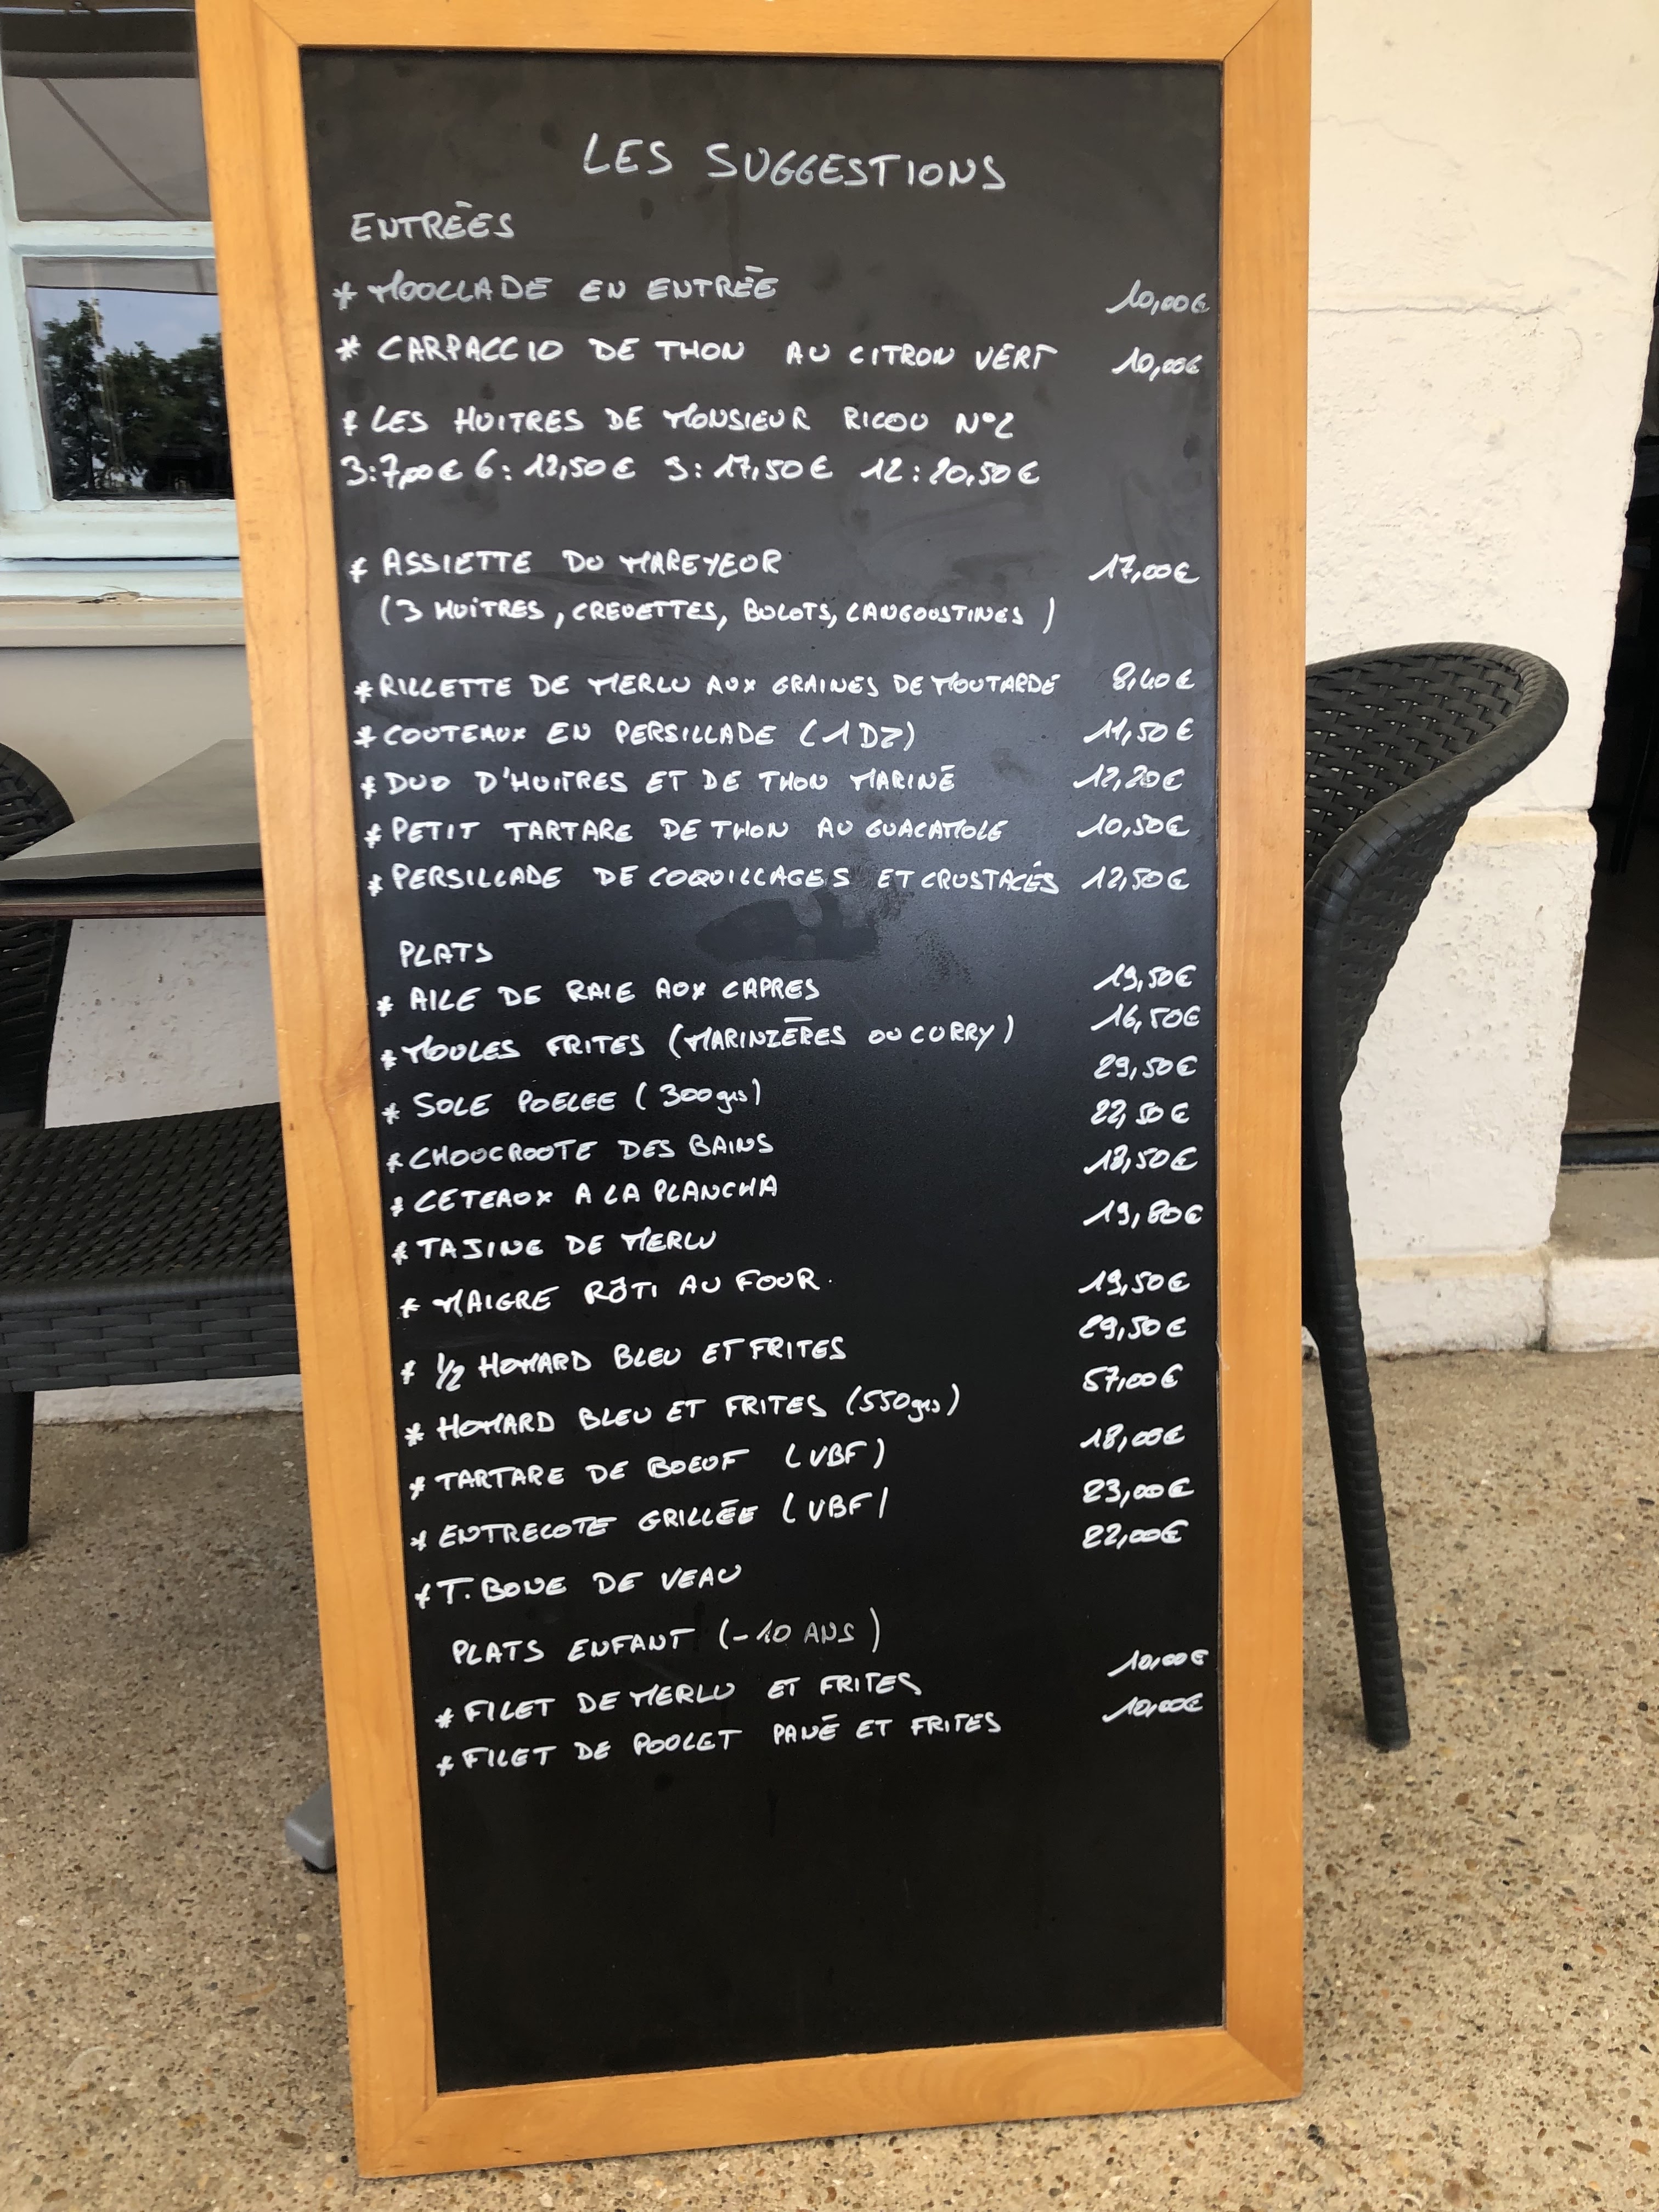 LES SUGGESTIONS
ENTRÉES
* MOUCLADE EN ENTRÉE 10,00€
* CARPACCIO DE THON AU CITRON VERT 10,00€
* LES HUITRES DE MONSIEUR RICOU N°2
3:7,00€ 6: 12,50€ 9: 17,50€ 12: 20,50€
* ASSIETTE DU MAREYEUR 17,00€
(3 HUITRES, CREVETTES, BULOTS, LANGOUSTINES)
* RILLETTE DE MERLU AUX GRAINES DE MOUTARDE 8,40€
* COUTEAUX EN PERSILLADE (1DZ) 11,50€
* DUO D'HUITRES ET DE THON MARINÉ 12,20€
* PETIT TARTARE DE THON AU GUACAMOLE 10,50€
* PERSILLADE DE COQUILLAGES ET CRUSTACÉS 12,50€
PLATS
* AILE DE RAIE AUX CAPRES 19,50€
* MOULES FRITES (MARINIÈRES OU CURRY) 16,50€
* SOLE POELEE (300grs) 29,50€
* CHOUCROUTE DES BAINS 22,50€
* CETEAUX A LA PLANCHA 18,50€
* TAJINE DE MERLU 19,80€
* MAIGRE RÔTI AU FOUR. 19,50€
* 1/2 HOMARD BLEU ET FRITES 29,50€
* HOMARD BLEU ET FRITES (550grs) 57,00€
* TARTARE DE BOEUF (VBF) 18,00€
* ENTRECOTE GRILLÉE (VBF) 23,00€
* T.BONE DE VEAU 22,00€
PLATS ENFANT (-10 ANS)
* FILET DE MERLU ET FRITES 10,00€
* FILET DE POULET PANÉ ET FRITES 10,00€